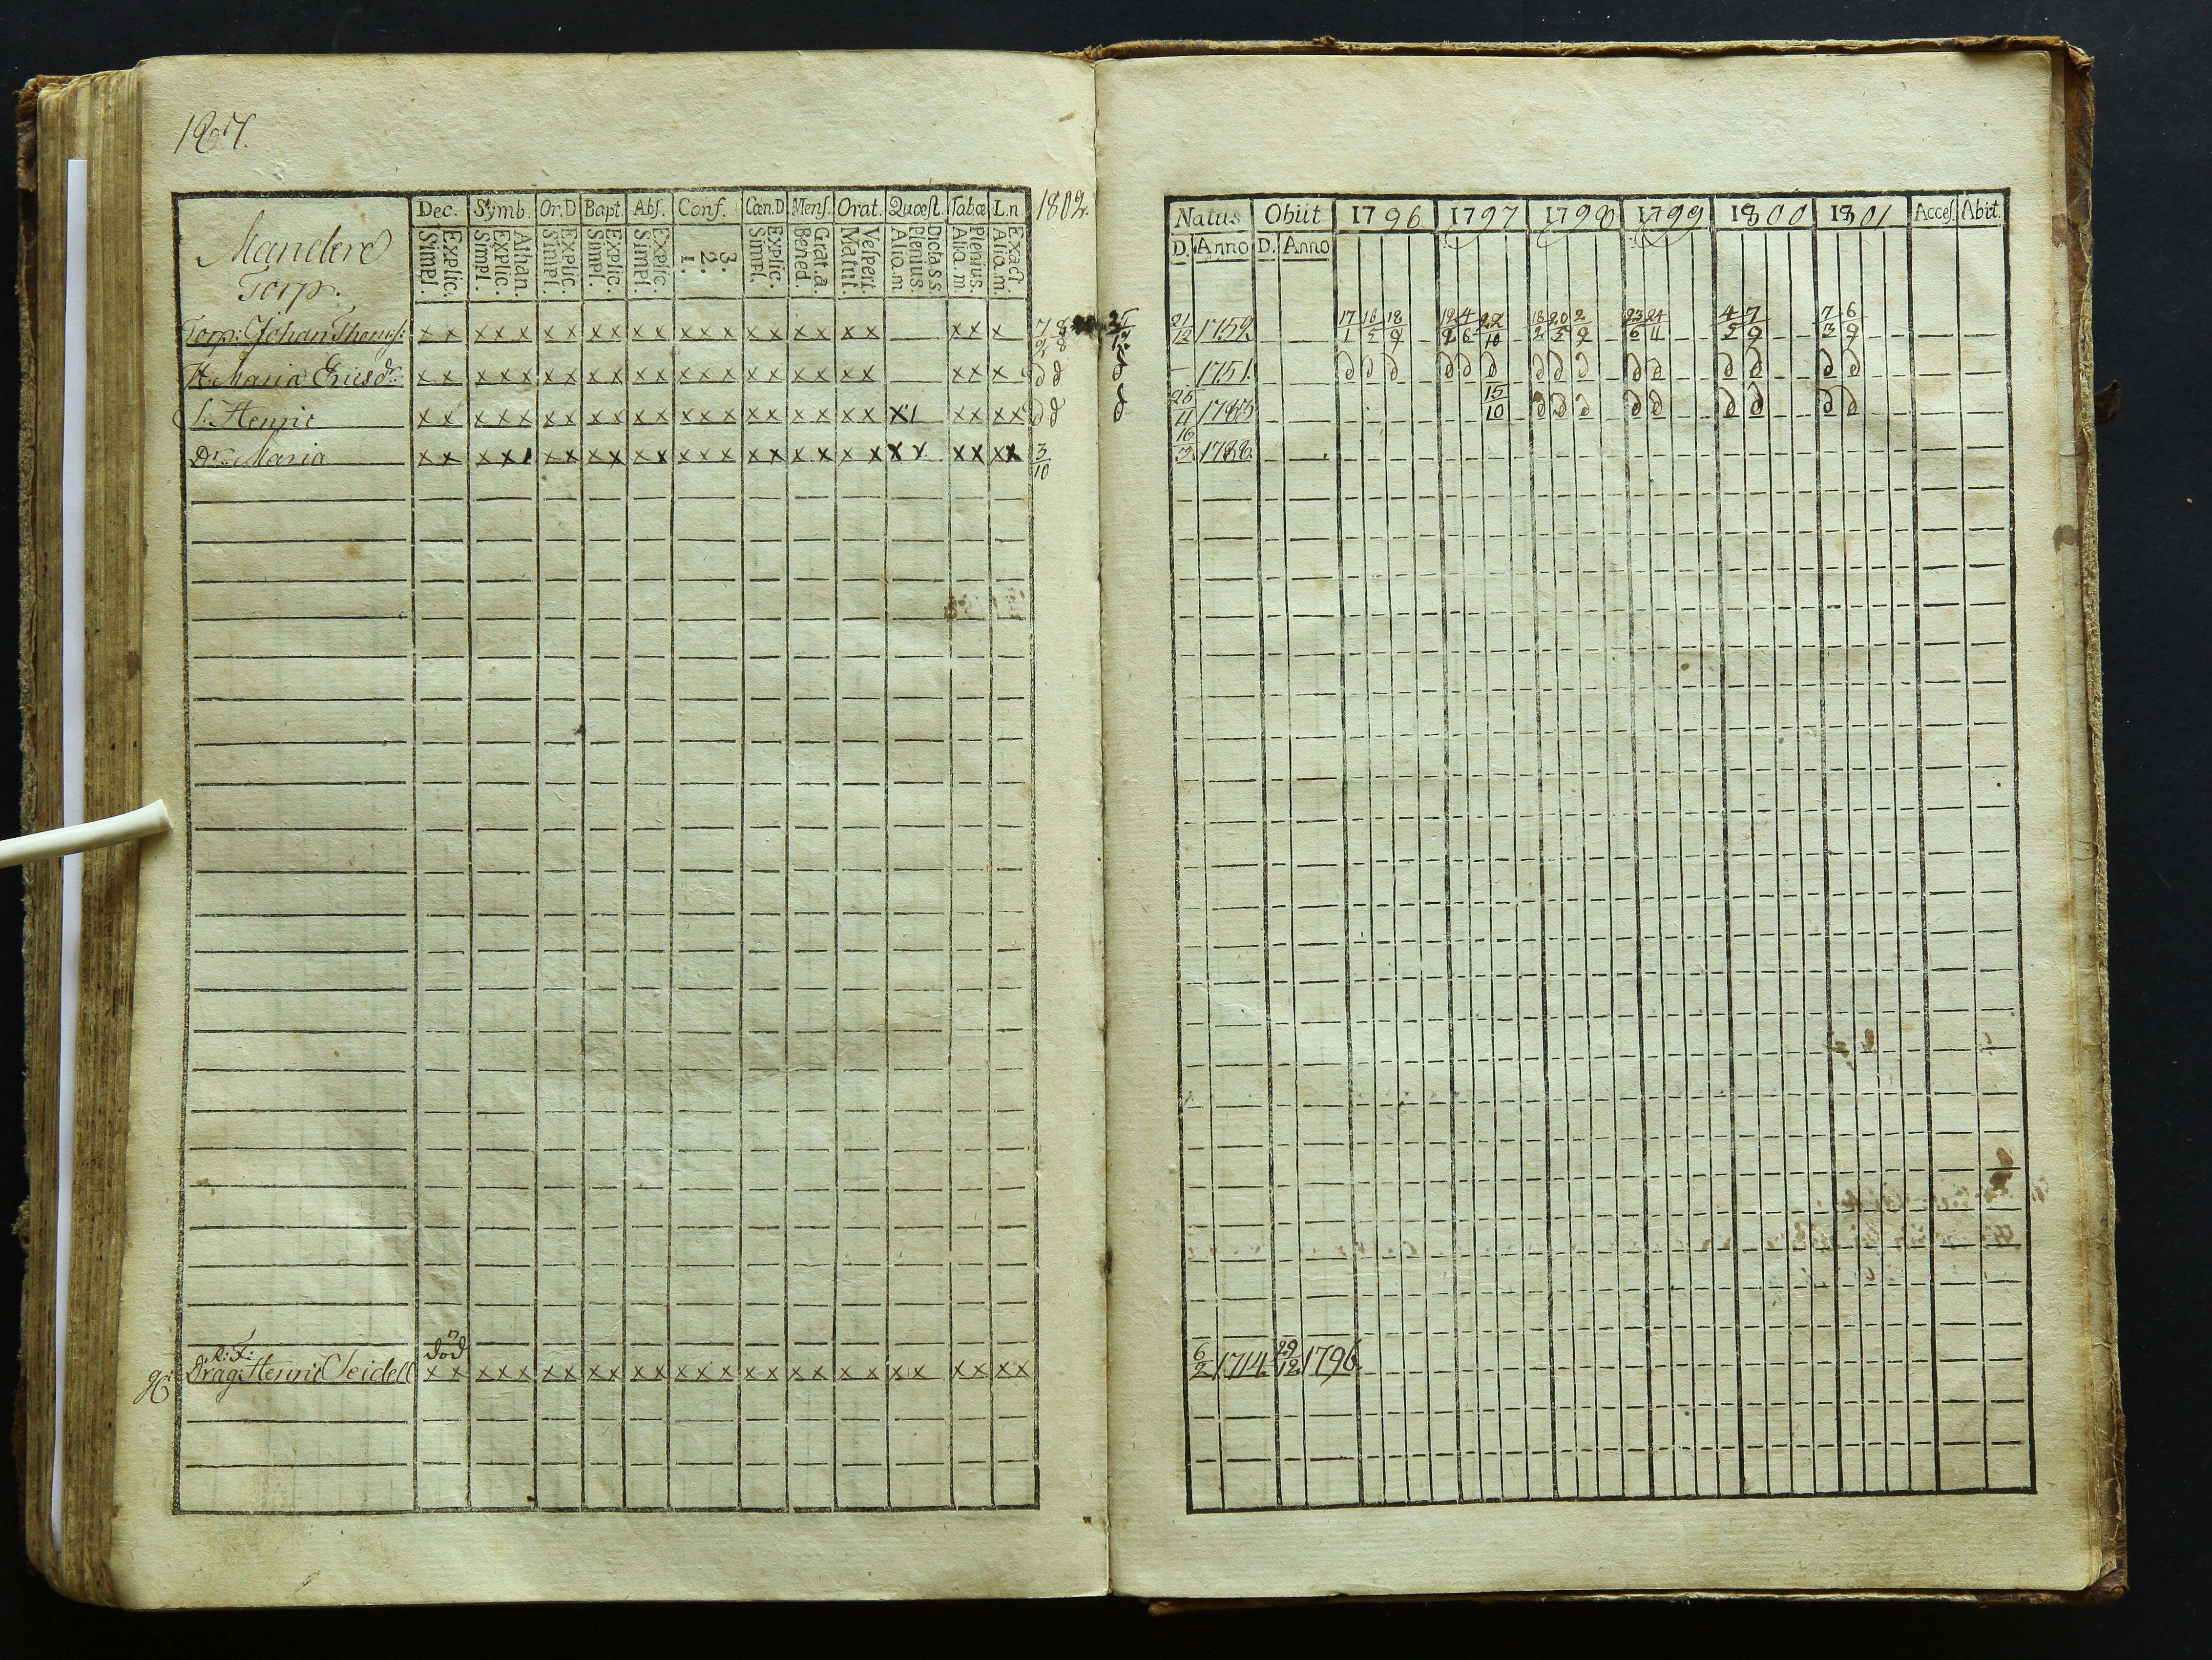 187.
Mandere
Torp.
Dec. Symb. Or.D Bapt. Abs. Conf. Cœn.D Mens. Orat. Quœst. Tabœ L.n 1802.
Explic. Simpl. Athan. Explic. Simpl. Explic. Simpl. Explic. Simpl. Explic. Simpl. 3. 2. 1. Explic. Simpl. Grat.a. Bened. Vespert. Matut. Dicta s.s. Plenius. Aliq.m. Plenius. Aliq.m. Exact. Aliq.m.
Torp: Johan Thomas: x x x x x x x x x x x x x x x x x x x x x x x x
H: Maria Ericsdr x x x x x x x x x x x x x x x x x x x x x x x x ∂ ∂
S. Henric x x x x x x x x x x x x x x x x x x x x x 1 x x x x ∂ ∂
Dr. Maria x x x x 1 x x x x x x x x x x x x x x x x x x x x x x 3/10
R: F:
död
Drag: Henric Seidell x x x x x x x x x x x x x x x x x x x x x x x x x x
Natus Obiit 1796 1797 1798 1799 1800 1801 Acces. Abit.
D. Anno D. Anno
21/12 1752 17/1 16/5 18/9 19/2 4/6 22/10 18/2 20/5 2/9 23/6 24/11 4/5 7/9 7/3 6/9
1751 ∂ ∂ ∂ ∂ ∂ ∂ ∂ ∂ ∂ ∂ ∂ ∂ ∂ ∂ ∂
26/11 1783 15/10 ∂ ∂ ∂ ∂ ∂ ∂ ∂ ∂ ∂
16/3 1788
6/2 1714 29/12 1796